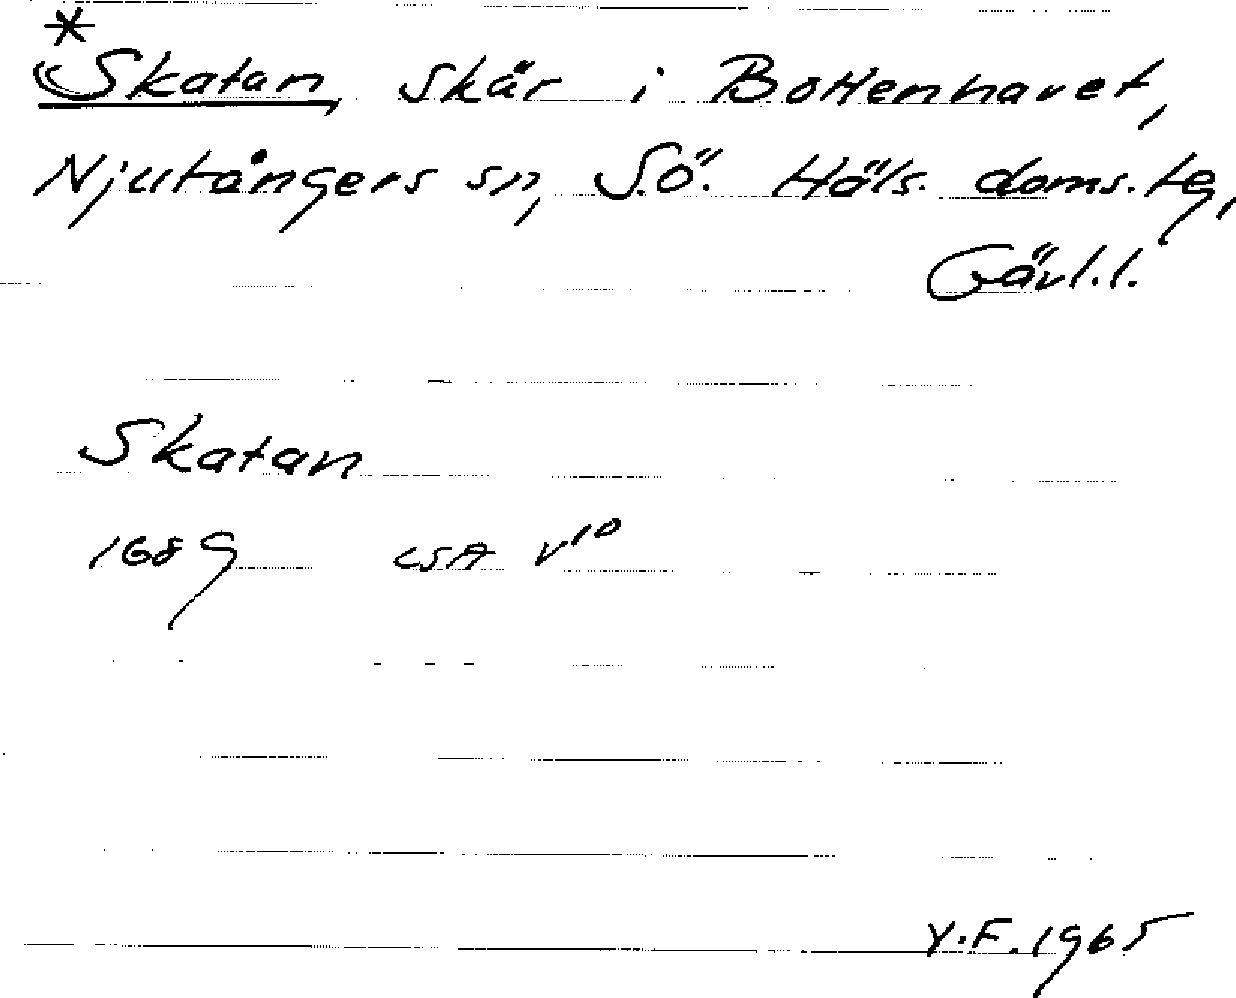 *
Skatan, skär i Bottenhavet,
Njutångers sn, S.ö. Häls. doms. tg,
Gävl.l.
Skatan
1689 LSA V10
Y.F. 1965